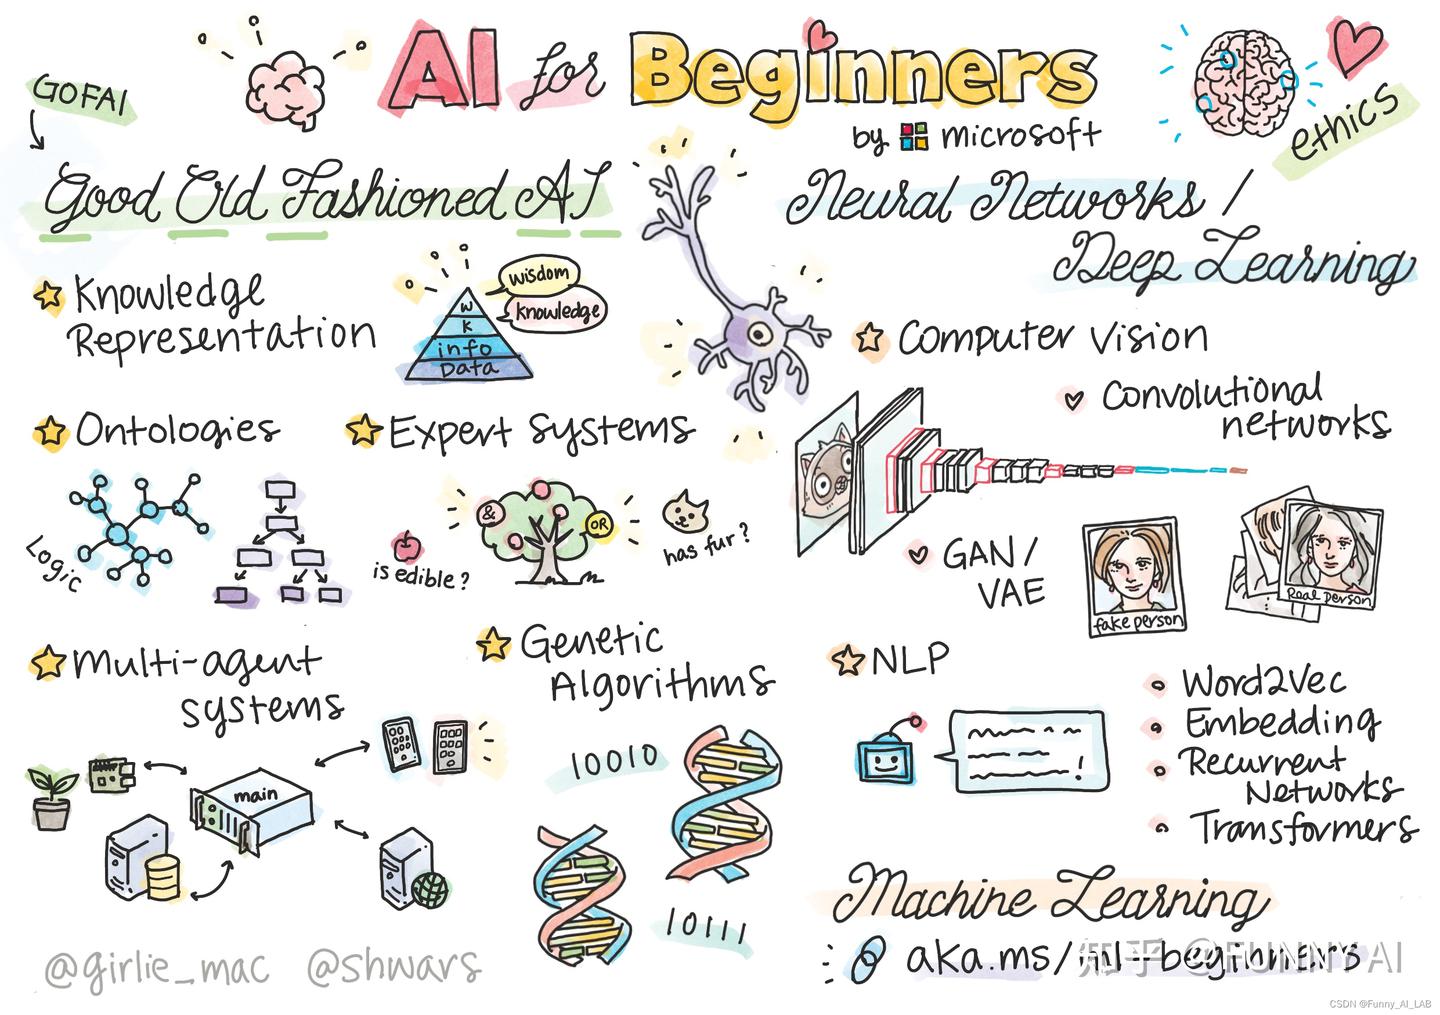 AI for Beginners
by microsoft
GOFAI
Good Old Fashioned AI
Knowledge
Representation
wisdom
knowledge
W
K
info
Data
Ontologies
Logic
Expert systems
&
OR
is edible?
has fur?
Multi-agent
systems
main
Genetic
Algorithms
10010
10111
@girlie_mac @shwars
ethics
Neural Networks /
Deep Learning
Computer Vision
Convolutional
networks
GAN/
VAE
fake person
Real person
NLP
Word2Vec
Embedding
Recurrent
Networks
Transformers
Machine Learning
aka.ms/ml-beginners
知乎 @FUNNY AI
CSDN @Funny_AI_LAB